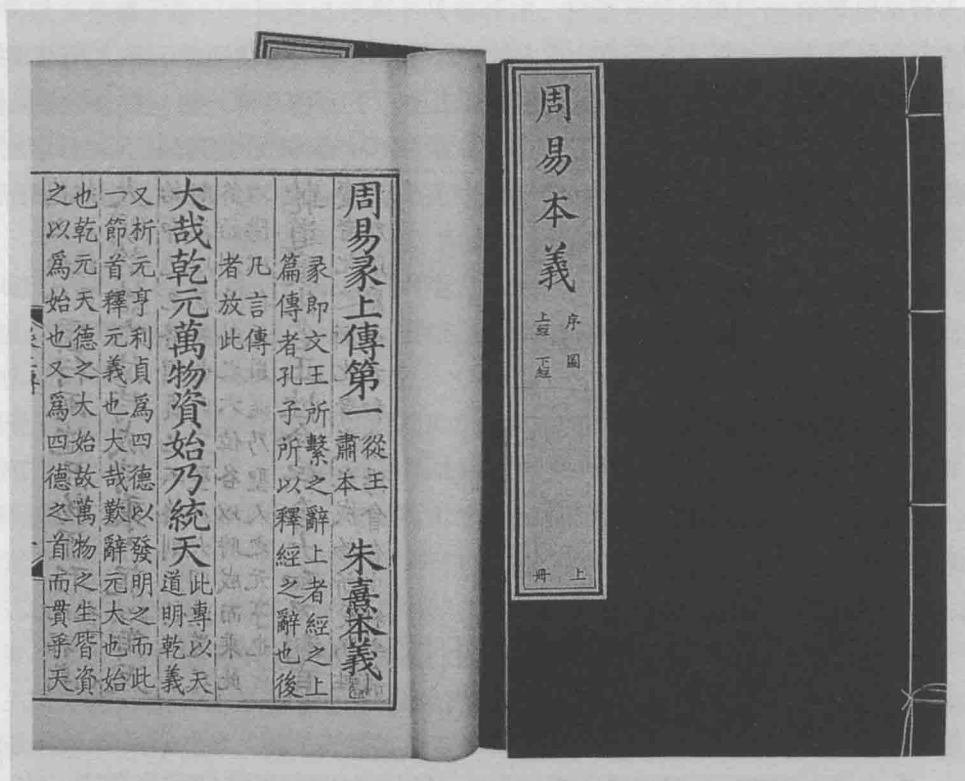 周易本義
序圖
上經 下經
上冊
周易彖上傳第一 從王肅本 朱熹本義
彖即文王所繫之辭上者經之上
篇傳者孔子所以釋經之辭也後
凡言傳
者放此
大哉乾元萬物資始乃統天 此專以天道明乾義
又析元亨利貞爲四德以發明之而此
一節首釋元義也大哉歎辭元大也始
也乾元天德之大始故萬物之生皆資
之以爲始也又爲四德之首而貫乎天